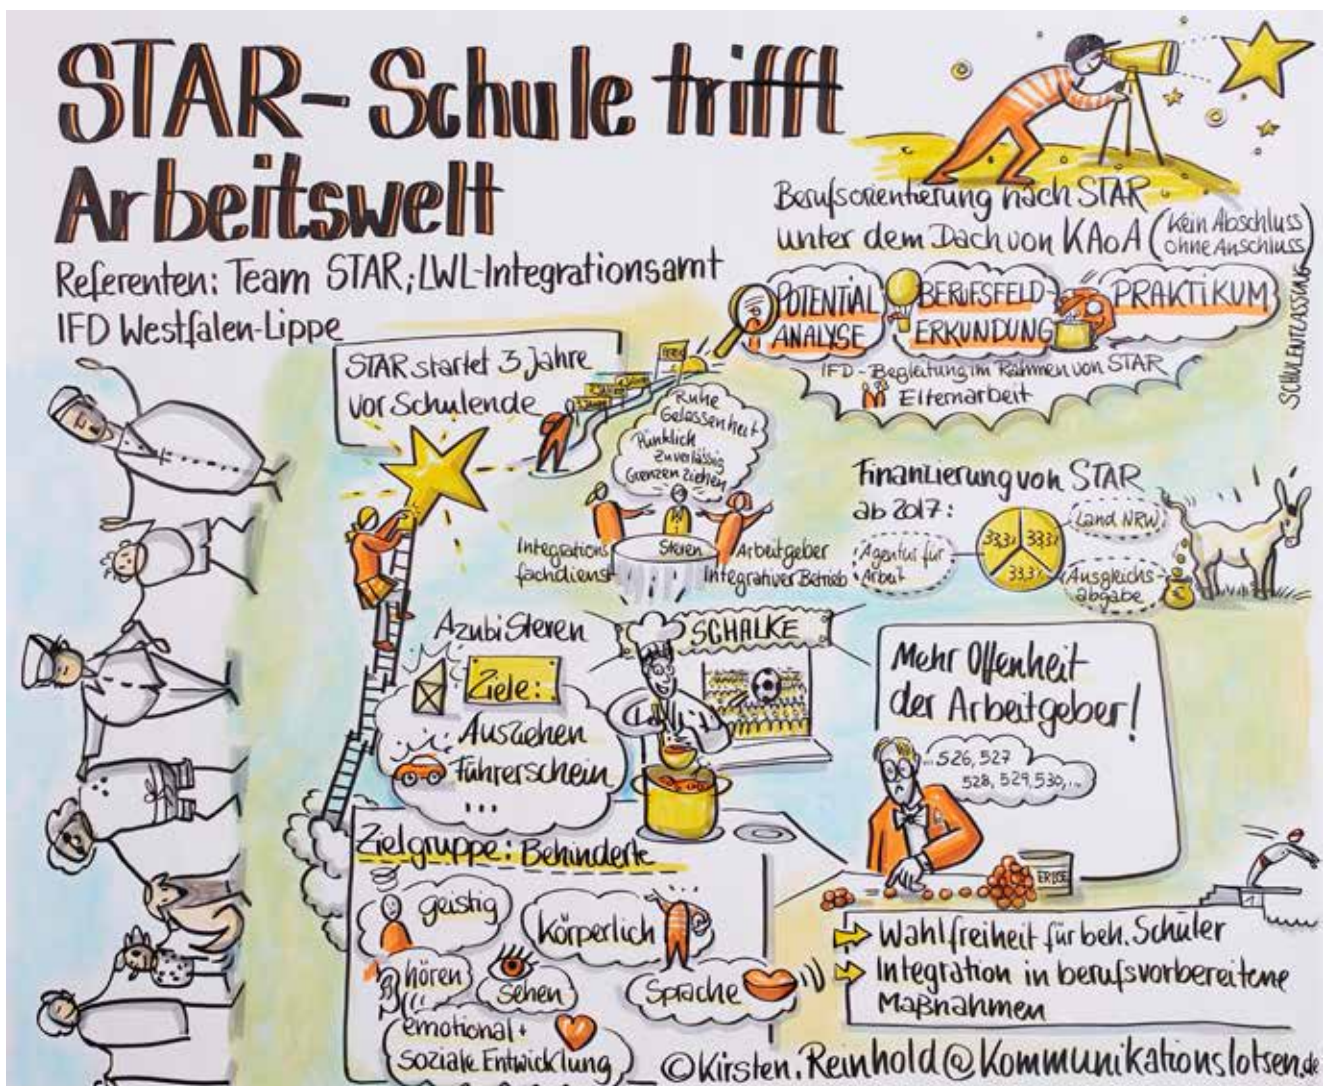 STAR-Schule trifft
Arbeitswelt
Referenten: Team STAR; LWL-Integrationsamt
IFD Westfalen-Lippe
Berufsorientierung nach STAR
unter dem Dach von KAoA (Kein Abschluss
ohne Anschluss)
POTENTIAL
ANALYSE
BERUFSFELD-
ERKUNDUNG
PRAKTIKUM
SCHULENTLASSUNG
IFD-Begleitung im Rahmen von STAR
Elternarbeit
STAR startet 3 Jahre
vor Schulende
Ruhe
Gelassenheit
Pünktlich
Zuverlässig
Grenzen ziehen
Integrations
fachdienst
Steren
Arbeitgeber
Integrativer Betrieb
Finanzierung von STAR
ab 2017:
Agentur für
Arbeit
33,3%
33,3%
33,3%
Land NRW
Ausgleichs-
abgabe
€
Azubi Steren
Ziele:
Ausziehen
Führerschein
...
SCHALKE
Mehr Offenheit
der Arbeitgeber!
...526, 527
528, 529, 530,...
ERBSE
1
Zielgruppe: Behinderte
geistig
Körperlich
hören
Sehen
Sprache
emotional +
soziale Entwicklung
Wahlfreiheit für beh. Schüler
Integration in berufsvorbereitene
Maßnahmen
©Kirsten.Reinhold@Kommunikationslotsen.de